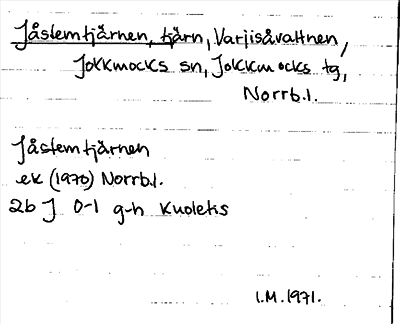 Jåstemtjärnen, tjärn, Varjisåvattnen,
Jokkmocks sn, Jokkmocks tg,
Norrb.l.
Jåstemtjärnen
ek (1970) Norrb.l.
26 J 0-1 g-h Kuoleks
I.M. 1971.